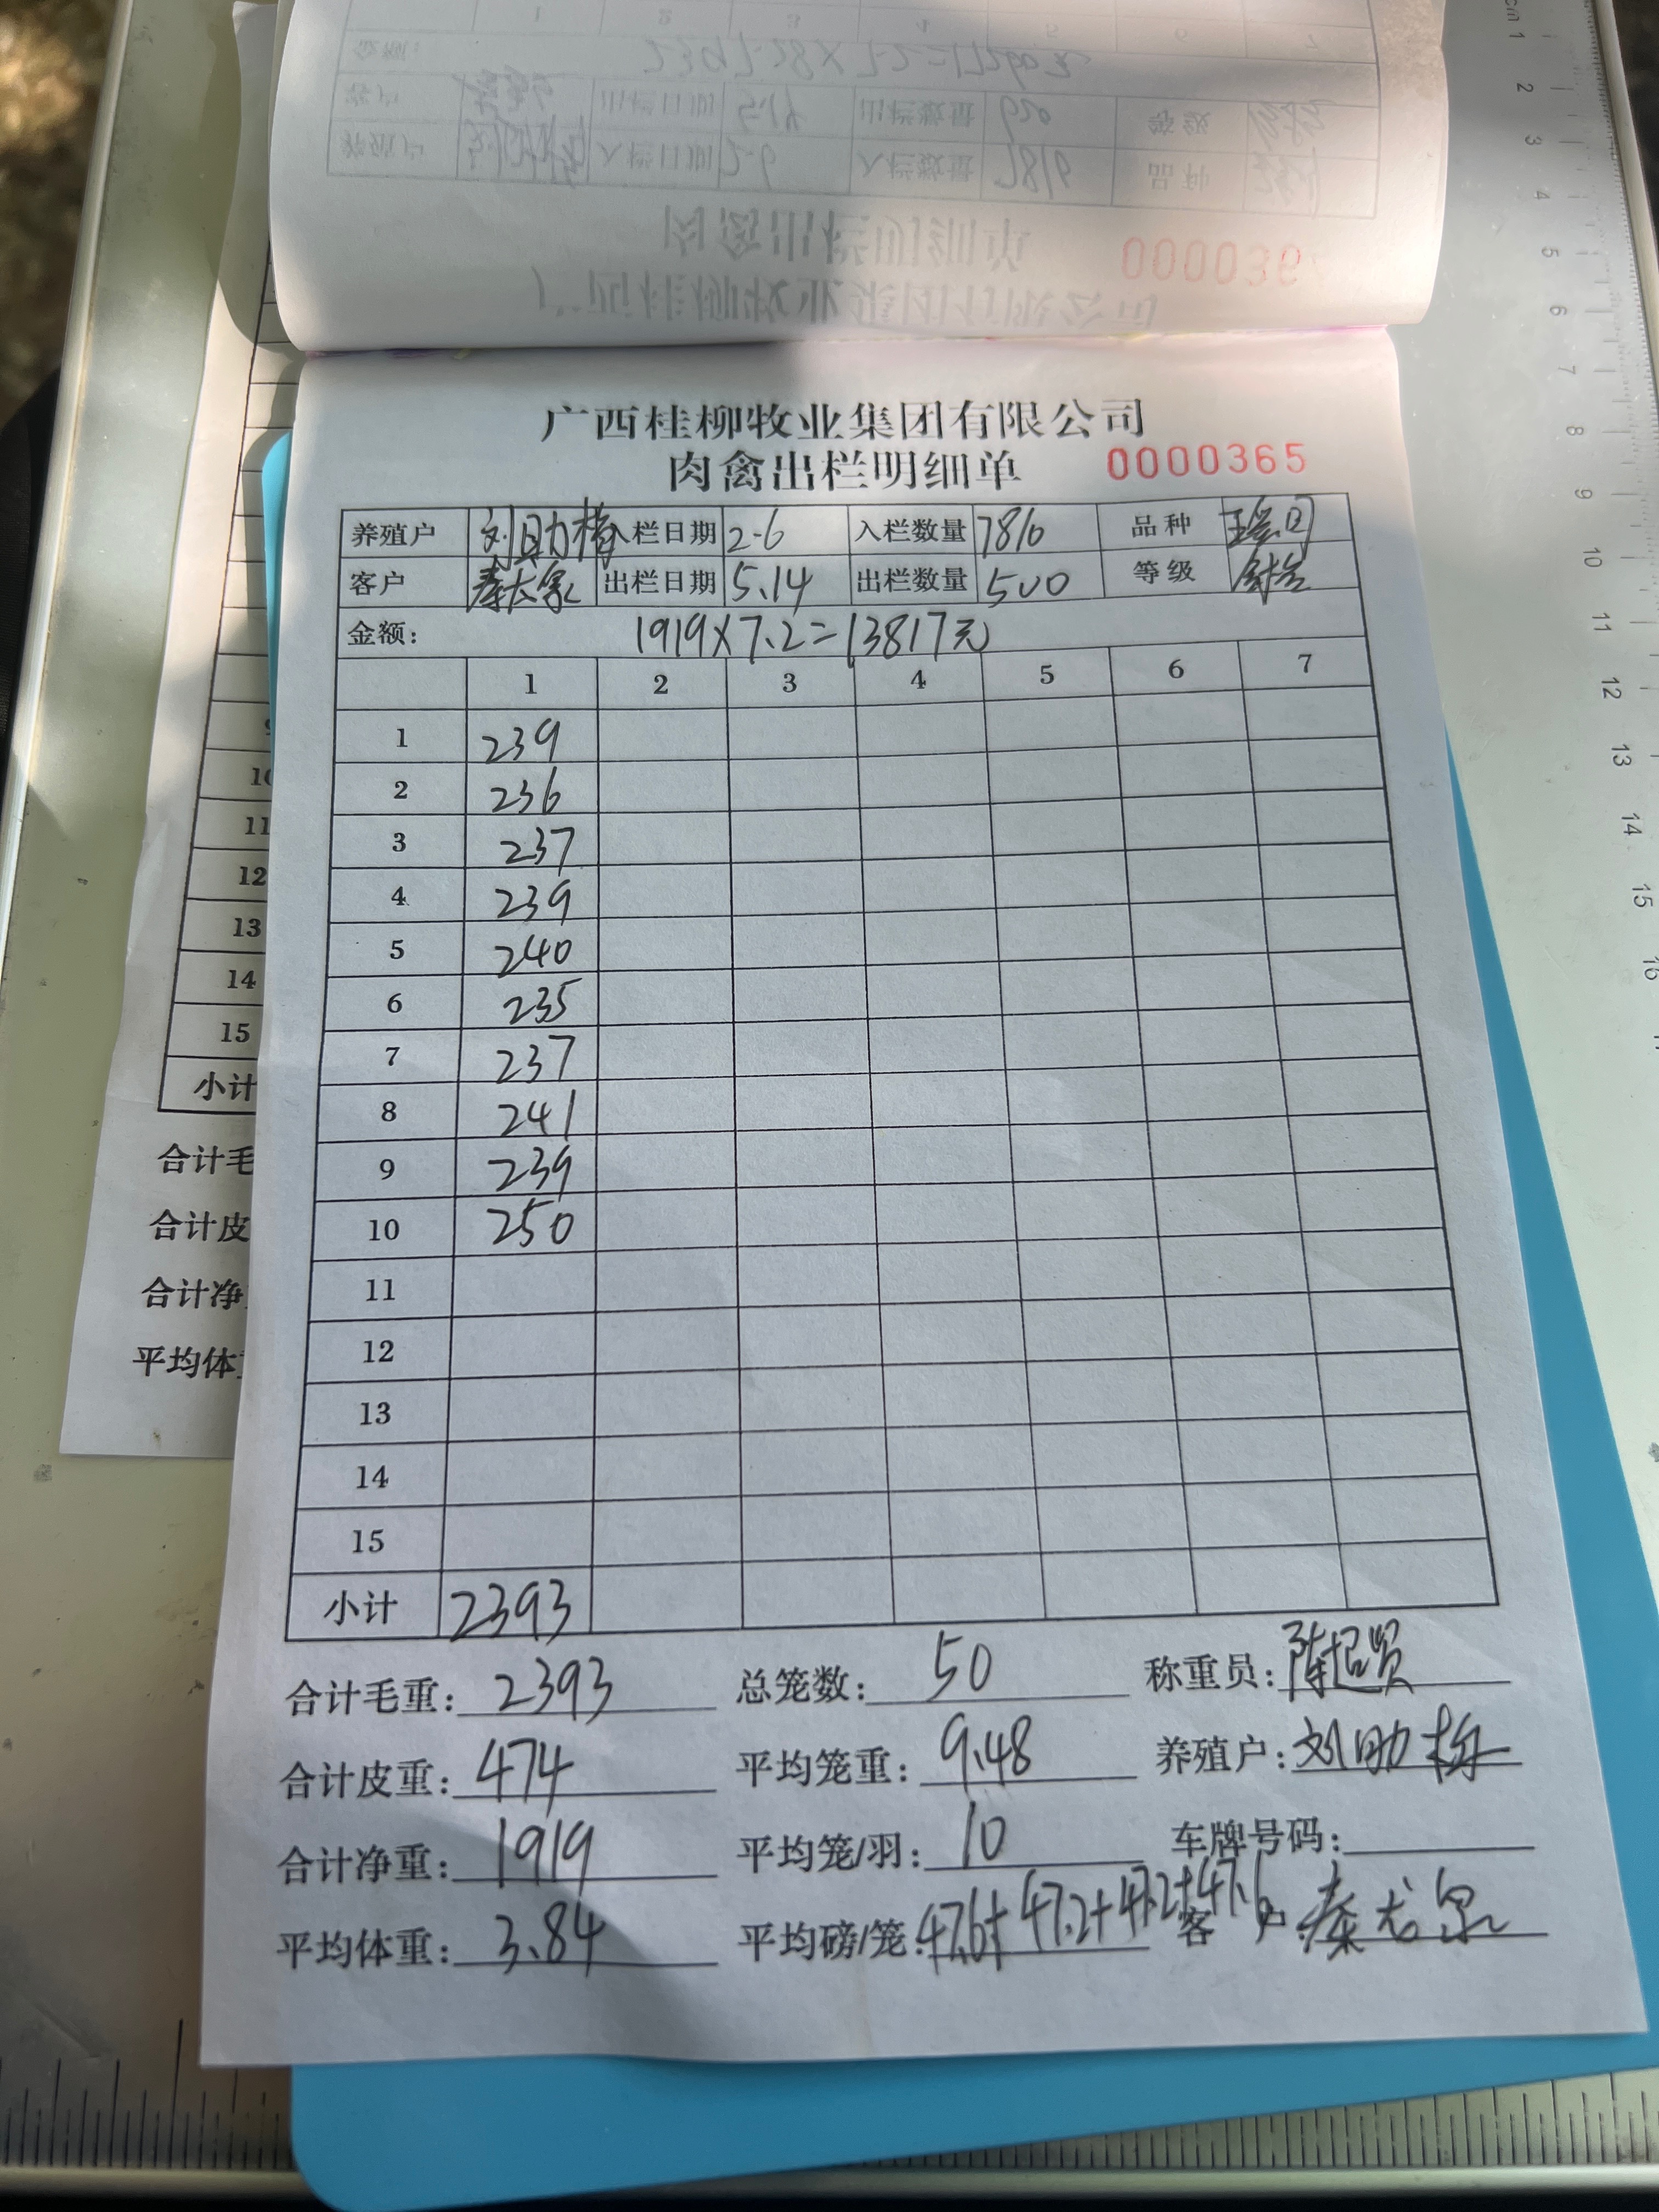 广西桂柳牧业集团有限公司
肉禽出栏明细单 0000365
养殖户 刘助梅 入栏日期 2-6 入栏数量 7816 品种
客户 出栏日期 5.14 出栏数量 500 等级
金额: 1919×7.2=13817元
1 2 3 4 5 6 7
1 239
2 236
3 237
4 239
5 240
6 235
7 237
8 241
9 239
10 250
11
12
13
14
15
小计 2393
合计毛重: 2393 总笼数: 50 称重员: 陈超贤
合计皮重: 474 平均笼重: 9.48 养殖户: 刘助
合计净重: 1919 平均笼/羽: 10 车牌号码:
平均体重: 3.84 平均磅/笼: 47.6+47.2+47.2+47.6 客户: 秦
10
11
12
13
14
15
小计
合计毛
合计皮
合计净
平均体